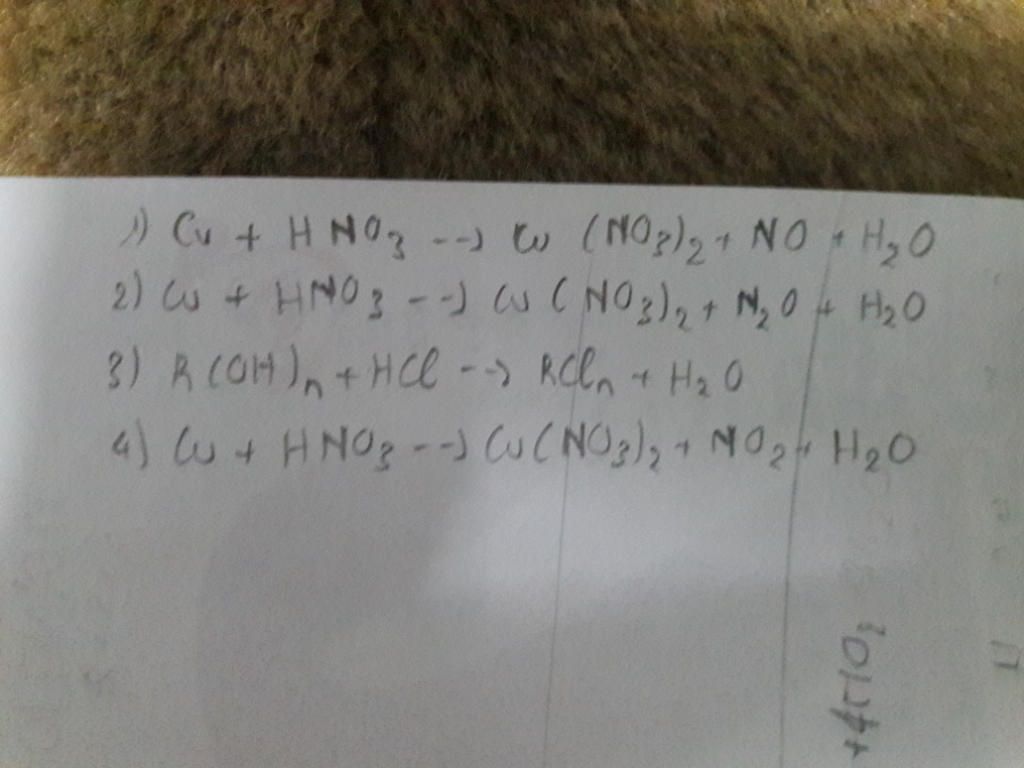 1) Cu + HNO3 --> Cu (NO3)2 + NO + H2O
2) Cu + HNO3 --> Cu (NO3)2 + N2O + H2O
3) R(OH)n + HCl --> RCln + H2O
4) Cu + HNO3 --> Cu(NO3)2 + NO2 + H2O